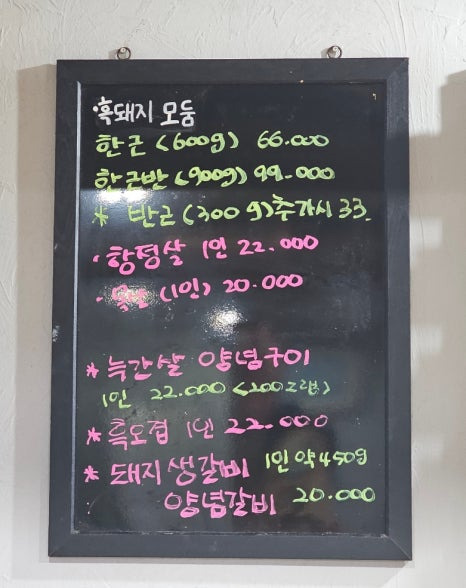 ·흑돼지 모둠
한근 (600g) 66.000
한근반 (900g) 99.000
* 반근 (300g)추가시 33.
· 항정살 1인 22.000
· (1인) 20.000
* 늑간살 양념구이
1인 22.000 (200그램)
* 흑오겹 1인 22.000
* 돼지생갈비 1인 약450g
양념갈비 20.000